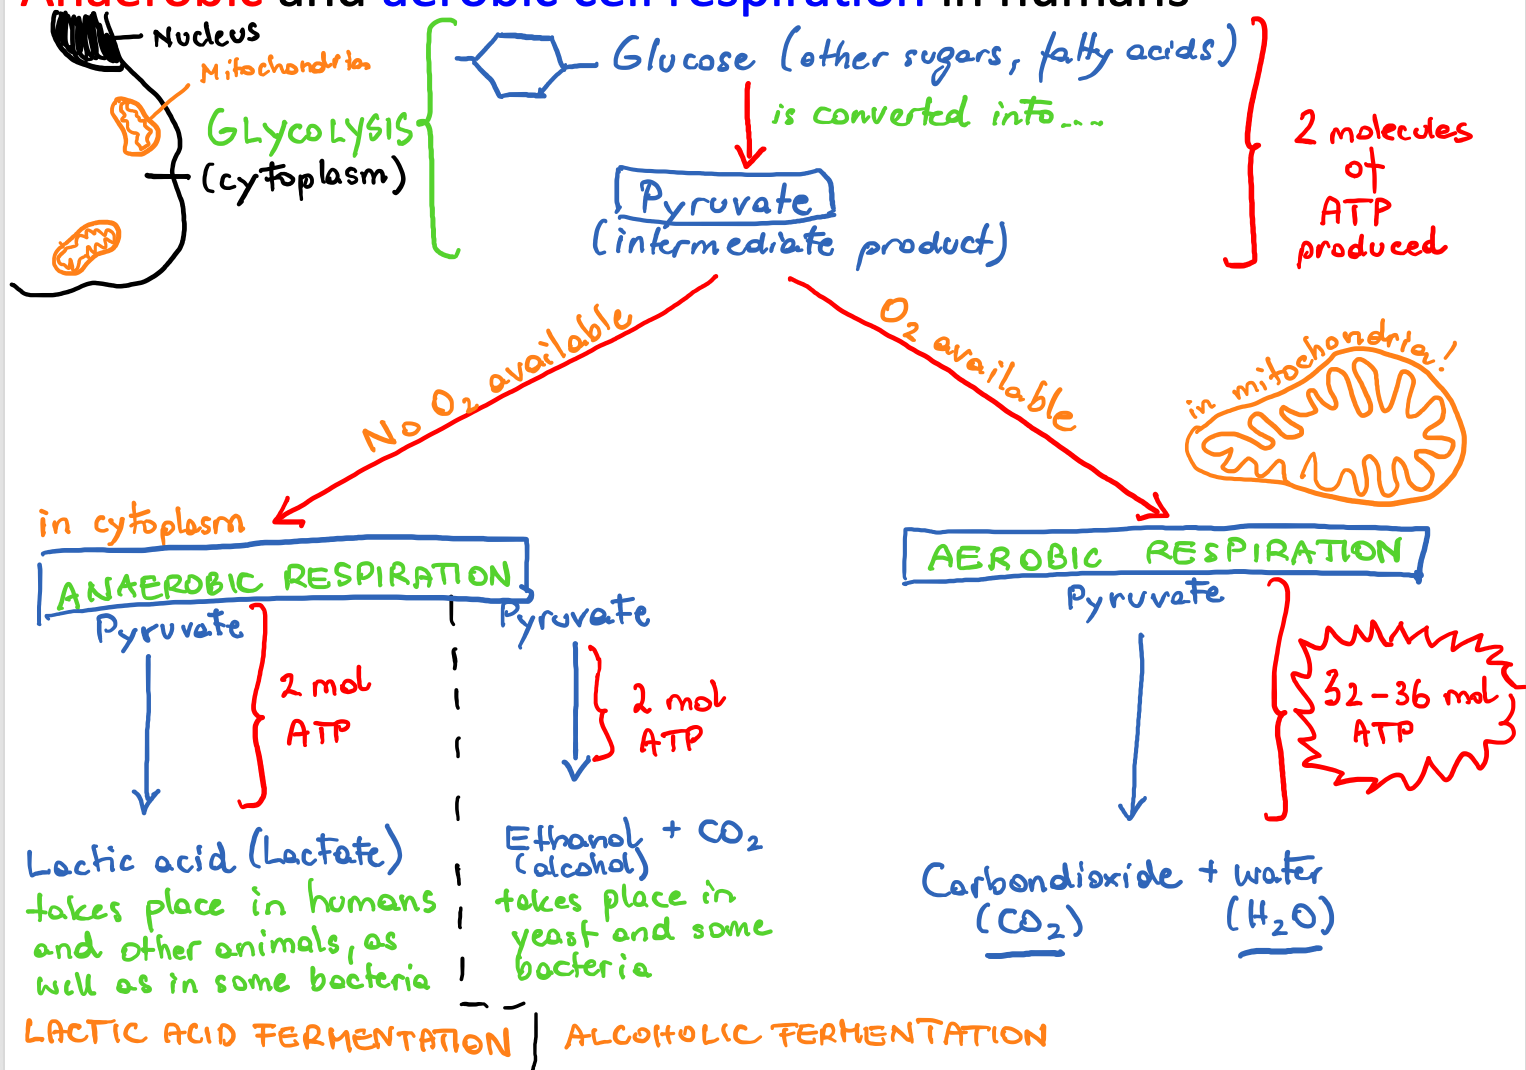 Anaerobic and aerobic cell respiration in humans
Nucleus
Mitochondria
GLYCOLYSIS
(cytoplasm)
Glucose (other sugars, fatty acids)
is converted into....
Pyruvate
(intermediate product)
2 molecules
of
ATP
produced
No O2 available
O2 available
in mitochondria!
in cytoplasm
ANAEROBIC RESPIRATION
Pyruvate
2 mol
ATP
Lactic acid (Lactate)
takes place in humans
and other animals, as
well as in some bacteria
LACTIC ACID FERMENTATION
Pyruvate
2 mol
ATP
Ethanol + CO2
(alcohol)
takes place in
yeast and some
bacteria
ALCOHOLIC FERMENTATION
AEROBIC RESPIRATION
Pyruvate
32-36 mol
ATP
Carbondioxide + water
(CO2) (H2O)